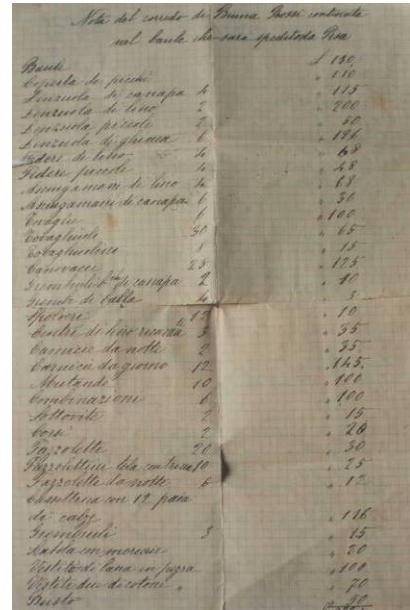 Nota del corredo di Bruna Rossi contenuta
nel baule che sara spedito da Pisa
Baule £ 130,
Coperta de picchi " 110
Lenzuola di canapa 4 " 115
Lenzuola di lino 2 " 200
Lenzuola piccole 2 " 50
Lenzuola di ghinea 6 " 196
Federe di lino 4 " 68
Federe piccole 4 " 48
Asciugamani di lino 4 " 68
Asciugamani di canapa 6 " 30
6 " 100
30 " 65
1 " 15
Canovacci 23 " 125
canapa 2 " 10
Grembi di balla 4 " 5
Spolveri 12 " 10
di lino 3 " 35
Camicie da notte 2 " 35
Camicie da giorno 12 " 145
Mutande 10 " 100
Combinazioni 6 " 100
Sottovite 2 " 15
2 " 20
Fazzolette 20 " 30
Fazzolettini tela 10 " 25
Fazzolette da notte 6 " 12
con 12 paia
di calze " 126
Grembiuli 3 " 15
in mercerie " 20
Vestito di lana in pezza " 100
Vestito due di cotone " 70
Busto